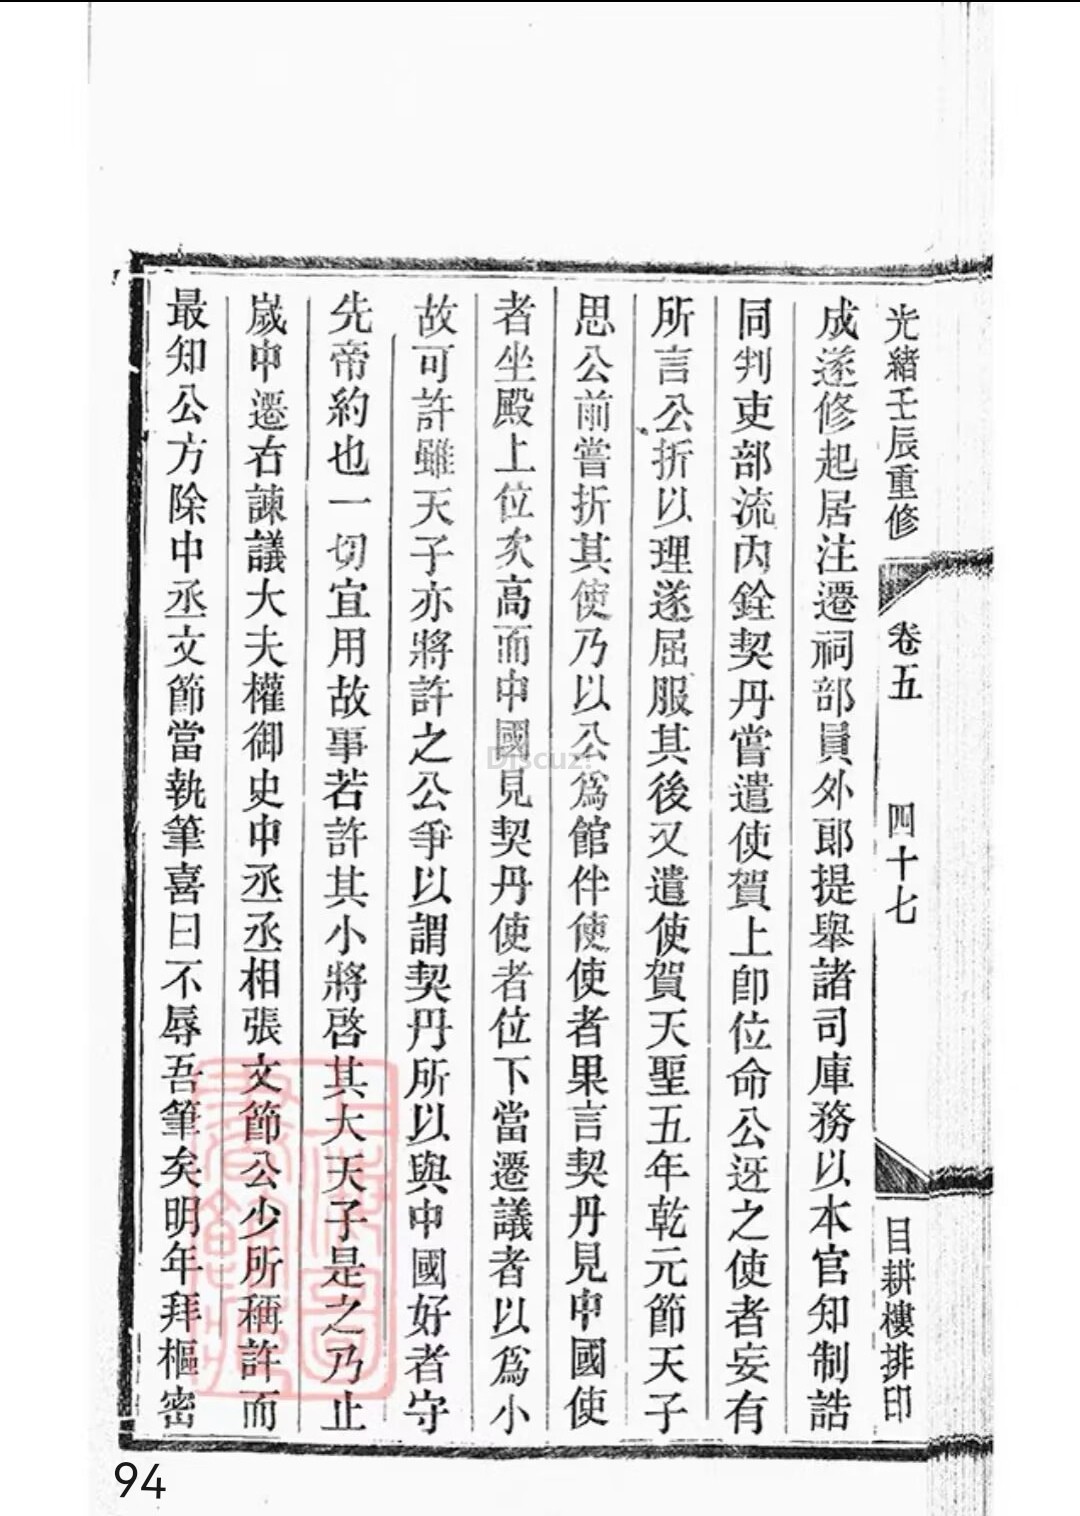 光緒壬辰重修 卷五 四十七 目耕樓排印
成遂修起居注遷祠部員外郎提舉諸司庫務以本官知制誥
同判吏部流内銓契丹嘗遣使賀上卽位命公迓之使者妄有
所言公折以理遂屈服其後又遣使賀天聖五年乾元節天子
思公前嘗折其使乃以公爲館伴使使者果言契丹見中國使
者坐殿上位次高而中國見契丹使者位下當遷議者以爲小
故可許雖天子亦將許之公爭以謂契丹所以與中國好者守
先帝約也一切宜用故事若許其小將啓其大天子是之乃止
歲中遷右諫議大夫權御史中丞丞相張文節公少所稱許而
最知公方除中丞文節當執筆喜曰不辱吾筆矣明年拜樞密
上海圖書館藏
Discuz!
94